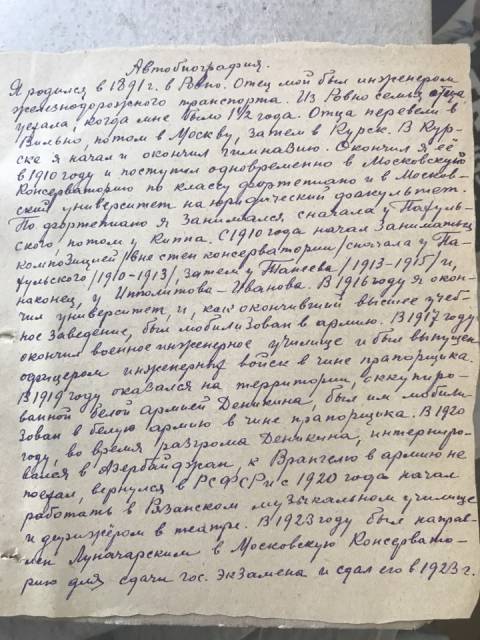 Автобиография.
Я родился в 1891 г. в Ровно. Отец мой был инженером
железнодорожного транспорта. Из Ровно семья отца
уехала, когда мне было 1 1/2 года. Отца перевели в
Вильно, потом в Москву, затем в Курск. В Кур-
ске я начал и окончил гимназию. Окончил я её
в 1910 году и поступил одновременно в Московскую
Консерваторию по классу фортепиано и в Москов-
ский университет на юридический факультет.
По фортепиано я занимался сначала у Пахуль-
ского, потом у Киппа. С 1910 года начал заниматься
композицией /вне стен консерватории/ сначала у Па-
хульского /1910-1913/, затем у Танеева /1913-1915/ и,
наконец, у Ипполитова-Иванова. В 1916 году я окон-
чил университет и, как окончивший высшее учеб-
ное заведение, был мобилизован в армию. В 1917 году
окончил военное инженерное училище и был выпущен
офицером инженерных войск в чине прапорщика.
В 1919 году оказался на территории, оккупиро-
ванной белой армией Деникина, был им мобили-
зован в белую армию в чине прапорщика. В 1920
году, во время разгрома Деникина, интерниро-
вался в Азербайджан, к Врангелю в армию не
поехал, вернулся в РСФСР и с 1920 года начал
работать в музыкальном училище
и дирижёром в театре. В 1923 году был направ-
лен Луначарским в Московскую Консервато-
рию для сдачи гос. экзамена и сдал его в 1923 г.